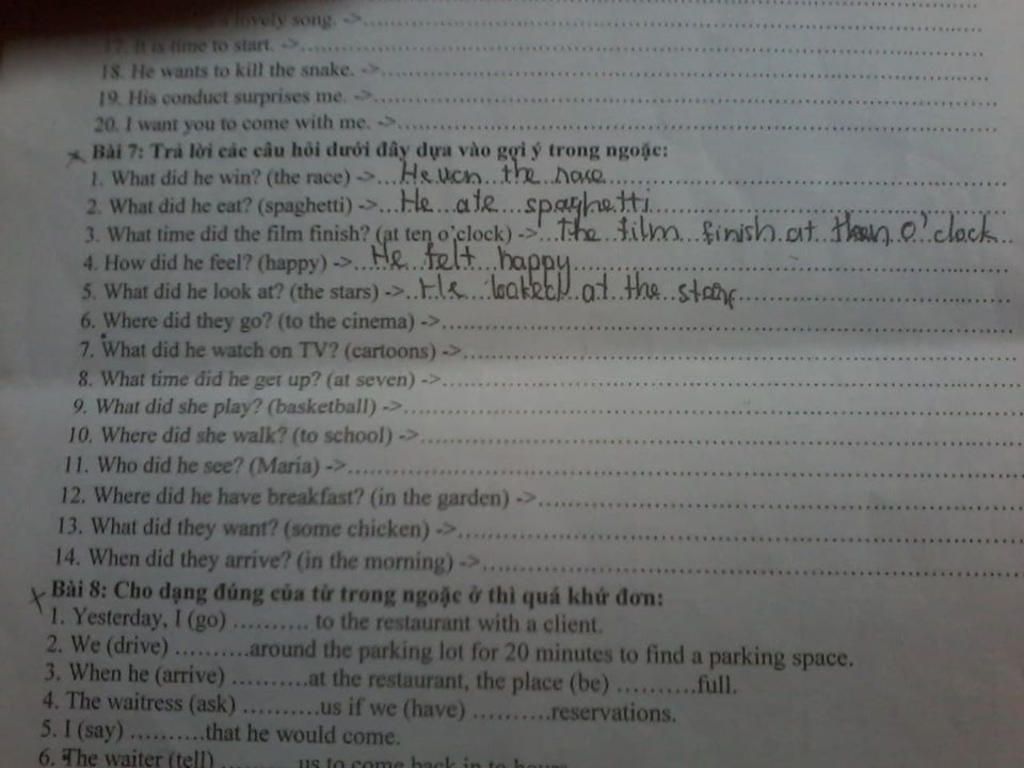 lovely song. ->
17. It is time to start. ->
18. He wants to kill the snake. ->
19. His conduct surprises me. ->
20. I want you to come with me. ->
Bài 7: Trả lời các câu hỏi dưới đây dựa vào gợi ý trong ngoặc:
1. What did he win? (the race) -> He won the race
2. What did he eat? (spaghetti) -> He ate spaghetti
3. What time did the film finish? (at ten o'clock) -> the film finish at o'clock
4. How did he feel? (happy) -> He felt happy
5. What did he look at? (the stars) -> He looked at the stars
6. Where did they go? (to the cinema) ->
7. What did he watch on TV? (cartoons) ->
8. What time did he get up? (at seven) ->
9. What did she play? (basketball) ->
10. Where did she walk? (to school) ->
11. Who did he see? (Maria) ->
12. Where did he have breakfast? (in the garden) ->
13. What did they want? (some chicken) ->
14. When did they arrive? (in the morning) ->
Bài 8: Cho dạng đúng của từ trong ngoặc ở thì quá khứ đơn:
1. Yesterday, I (go) .......... to the restaurant with a client.
2. We (drive) ..........around the parking lot for 20 minutes to find a parking space.
3. When he (arrive) ..........at the restaurant, the place (be) ..........full.
4. The waitress (ask) ..........us if we (have) ..........reservations.
5. I (say) ..........that he would come.
6. The waiter (tell) .......... us to come back in